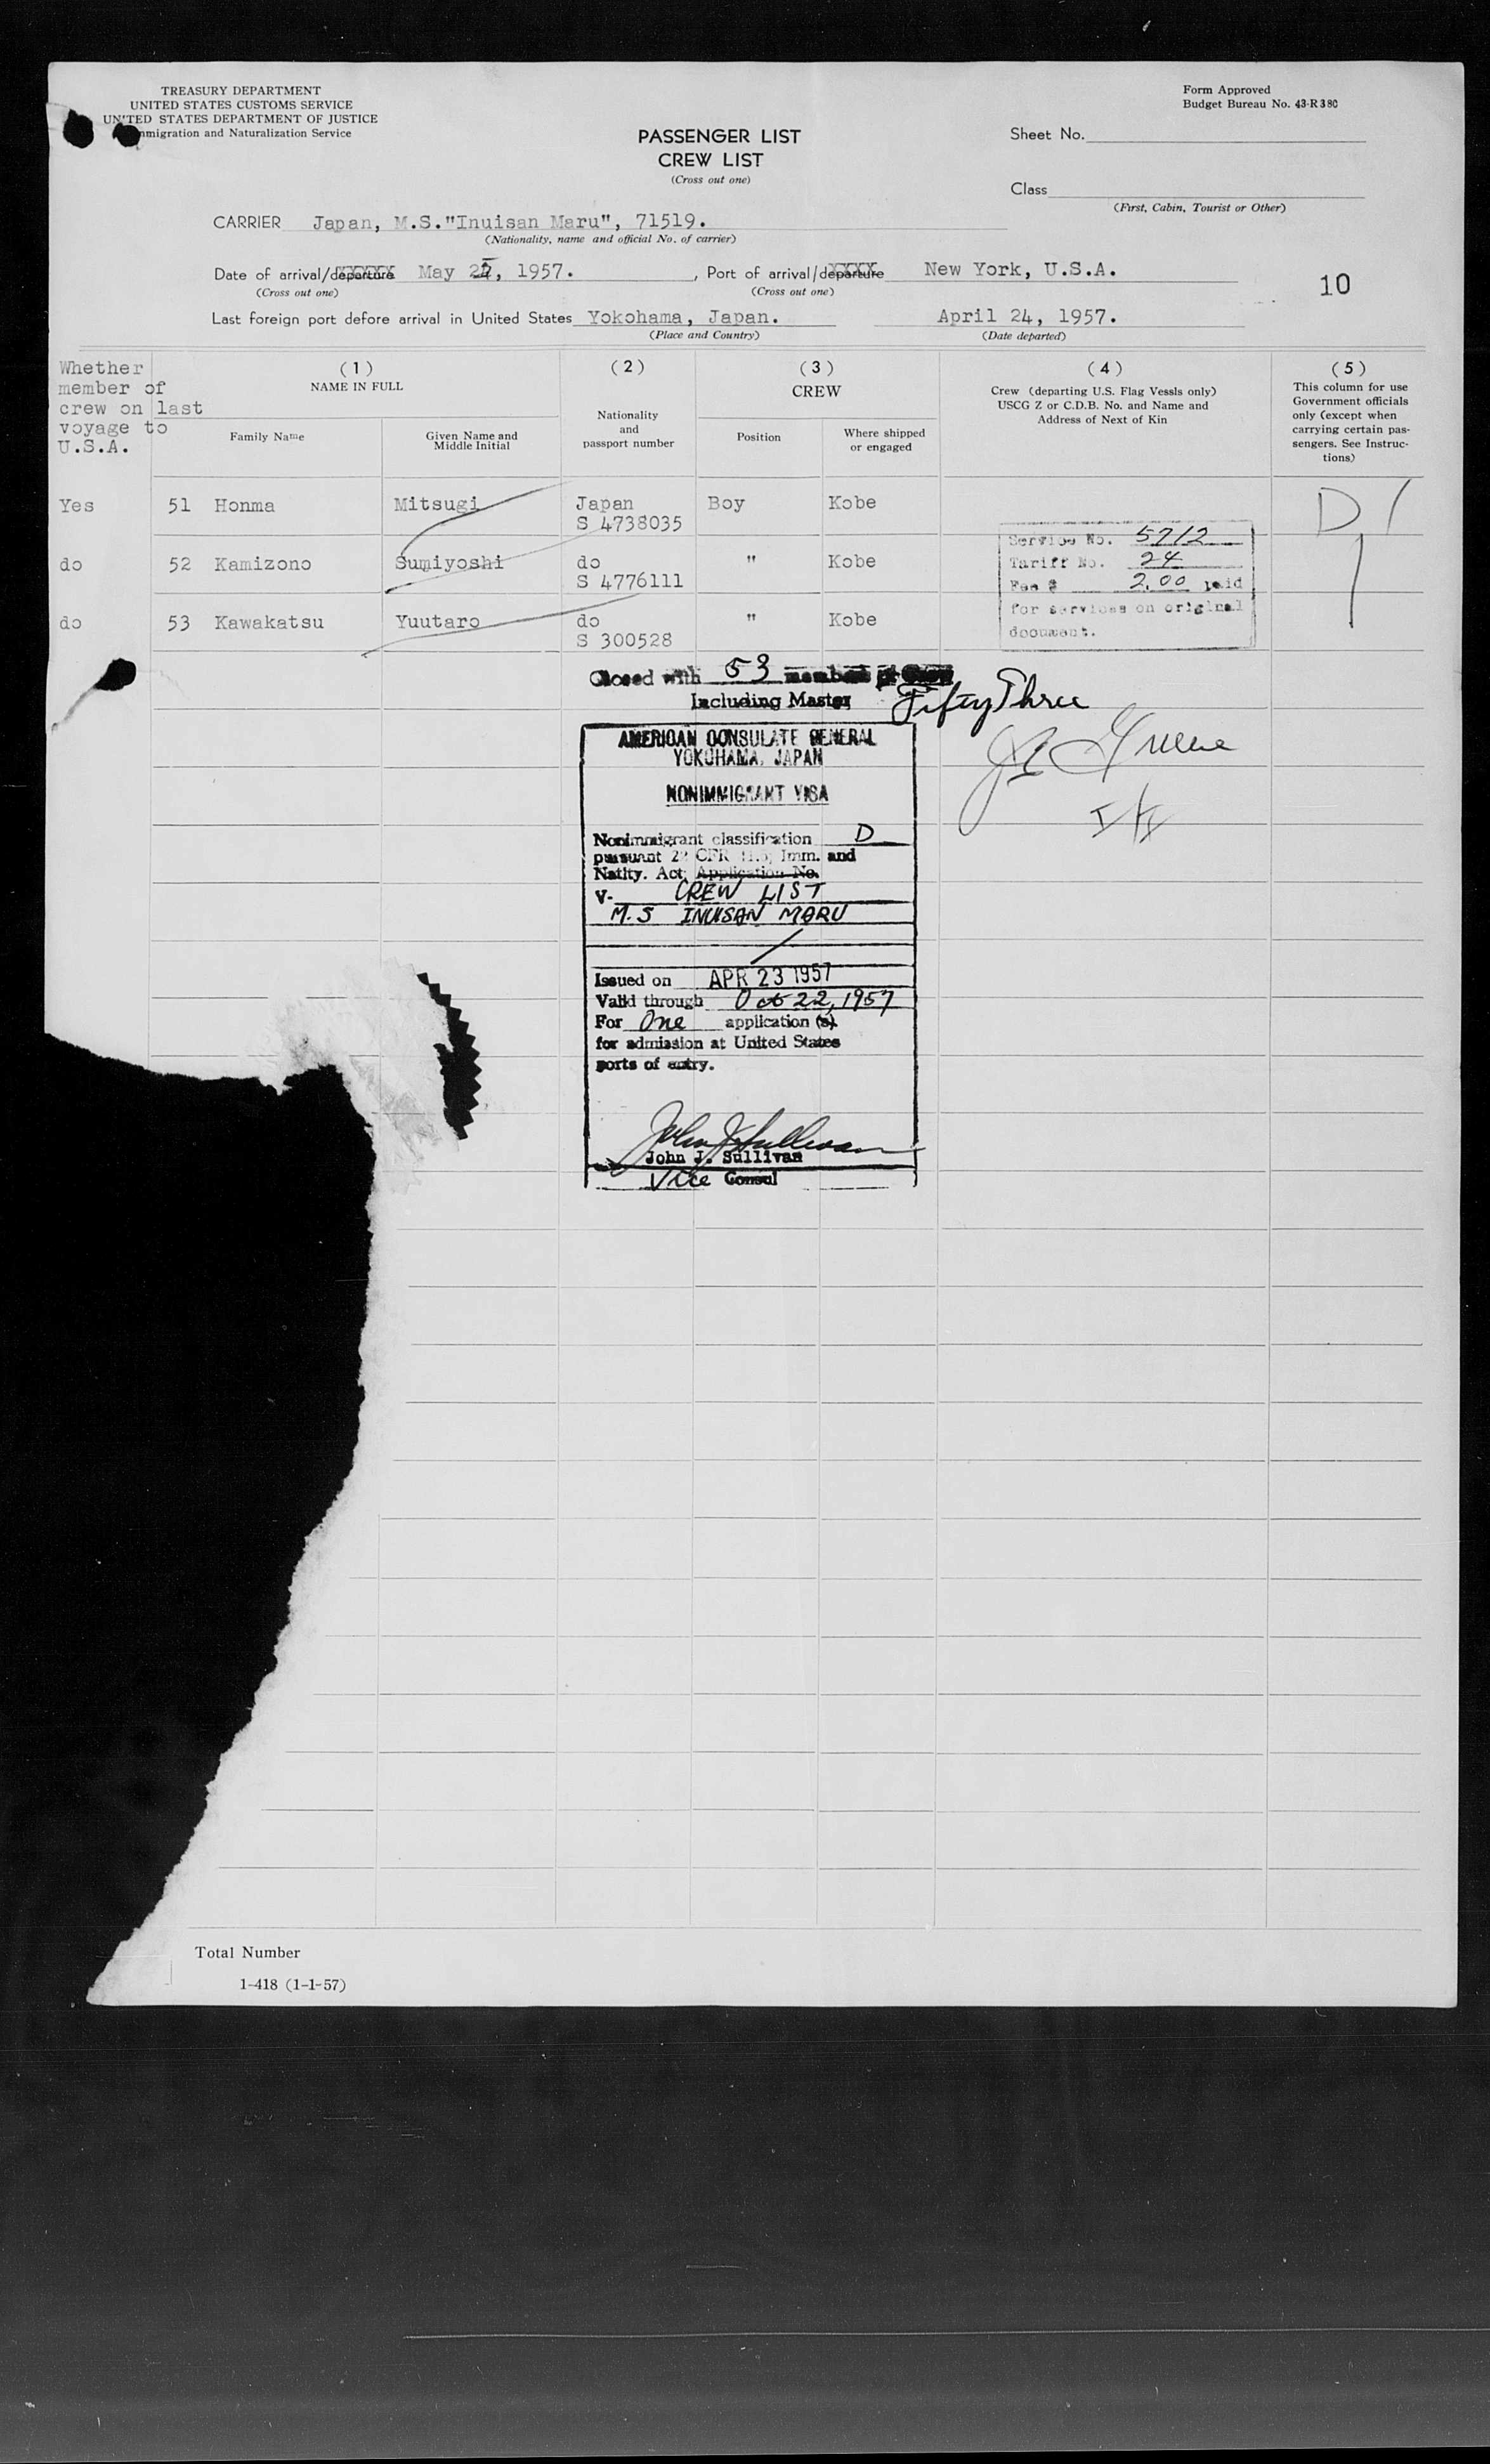 TREASURY DEPARTMENT
UNITED STATES CUSTOMS SERVICE
UNITED STATES DEPARTMENT OF JUSTICE
mmigration and Naturalization Service
Form Approved
Budget Bureau No. 43-R380
PASSENGER LIST
CREW LIST
(Cross out one)
Sheet No.
Class
(First, Cabin, Tourist or Other)
CARRIER Japan, M.S."Inuisan Maru", 71519.
(Nationality, name and official No. of carrier)
Date of arrival/departure May , 1957. , Port of arrival/departure New York, U.S.A.
(Cross out one) (Cross out one)
10
Last foreign port defore arrival in United States Yokohama, Japan. April 24, 1957.
(Place and Country) (Date departed)
Whether
member of
crew on last
voyage to
U.S.A.
(1)
NAME IN FULL
Family Name
Given Name and
Middle Initial
(2)
Nationality
and
passport number
(3)
CREW
Position
Where shipped
or engaged
(4)
Crew (departing U.S. Flag Vessls only)
USCG Z or C.D.B. No. and Name and
Address of Next of Kin
(5)
This column for use
Government officials
only (except when
carrying certain pas-
sengers. See Instruc-
tions)
Yes 51 Honma Mitsugi Japan Boy Kobe D1
S 4738035
do 52 Kamizono Sumiyoshi do " Kobe
S 4776111
do 53 Kawakatsu Yuutaro do " Kobe
S 300528
Service No. 5712
Tariff No. 24
Fee $ 2.00 paid
for services on original
document.
Closed with 53 members of Crew
Including Master Fifty Three
AMERICAN CONSULATE GENERAL
YOKOHAMA, JAPAN
NONIMMIGRANT VISA
Nonimmigrant classification D
pursuant 22 CFR Imm. and
Natlty. Act; Application No.
V- CREW LIST
M.S INUISAN MARU
Issued on APR 23 1957
Valid through Oct 22, 1957
For One application (s).
for admission at United States
ports of entry.
John J. Sullivan
John J. Sullivan
Vice Consul
Total Number
1-418 (1-1-57)